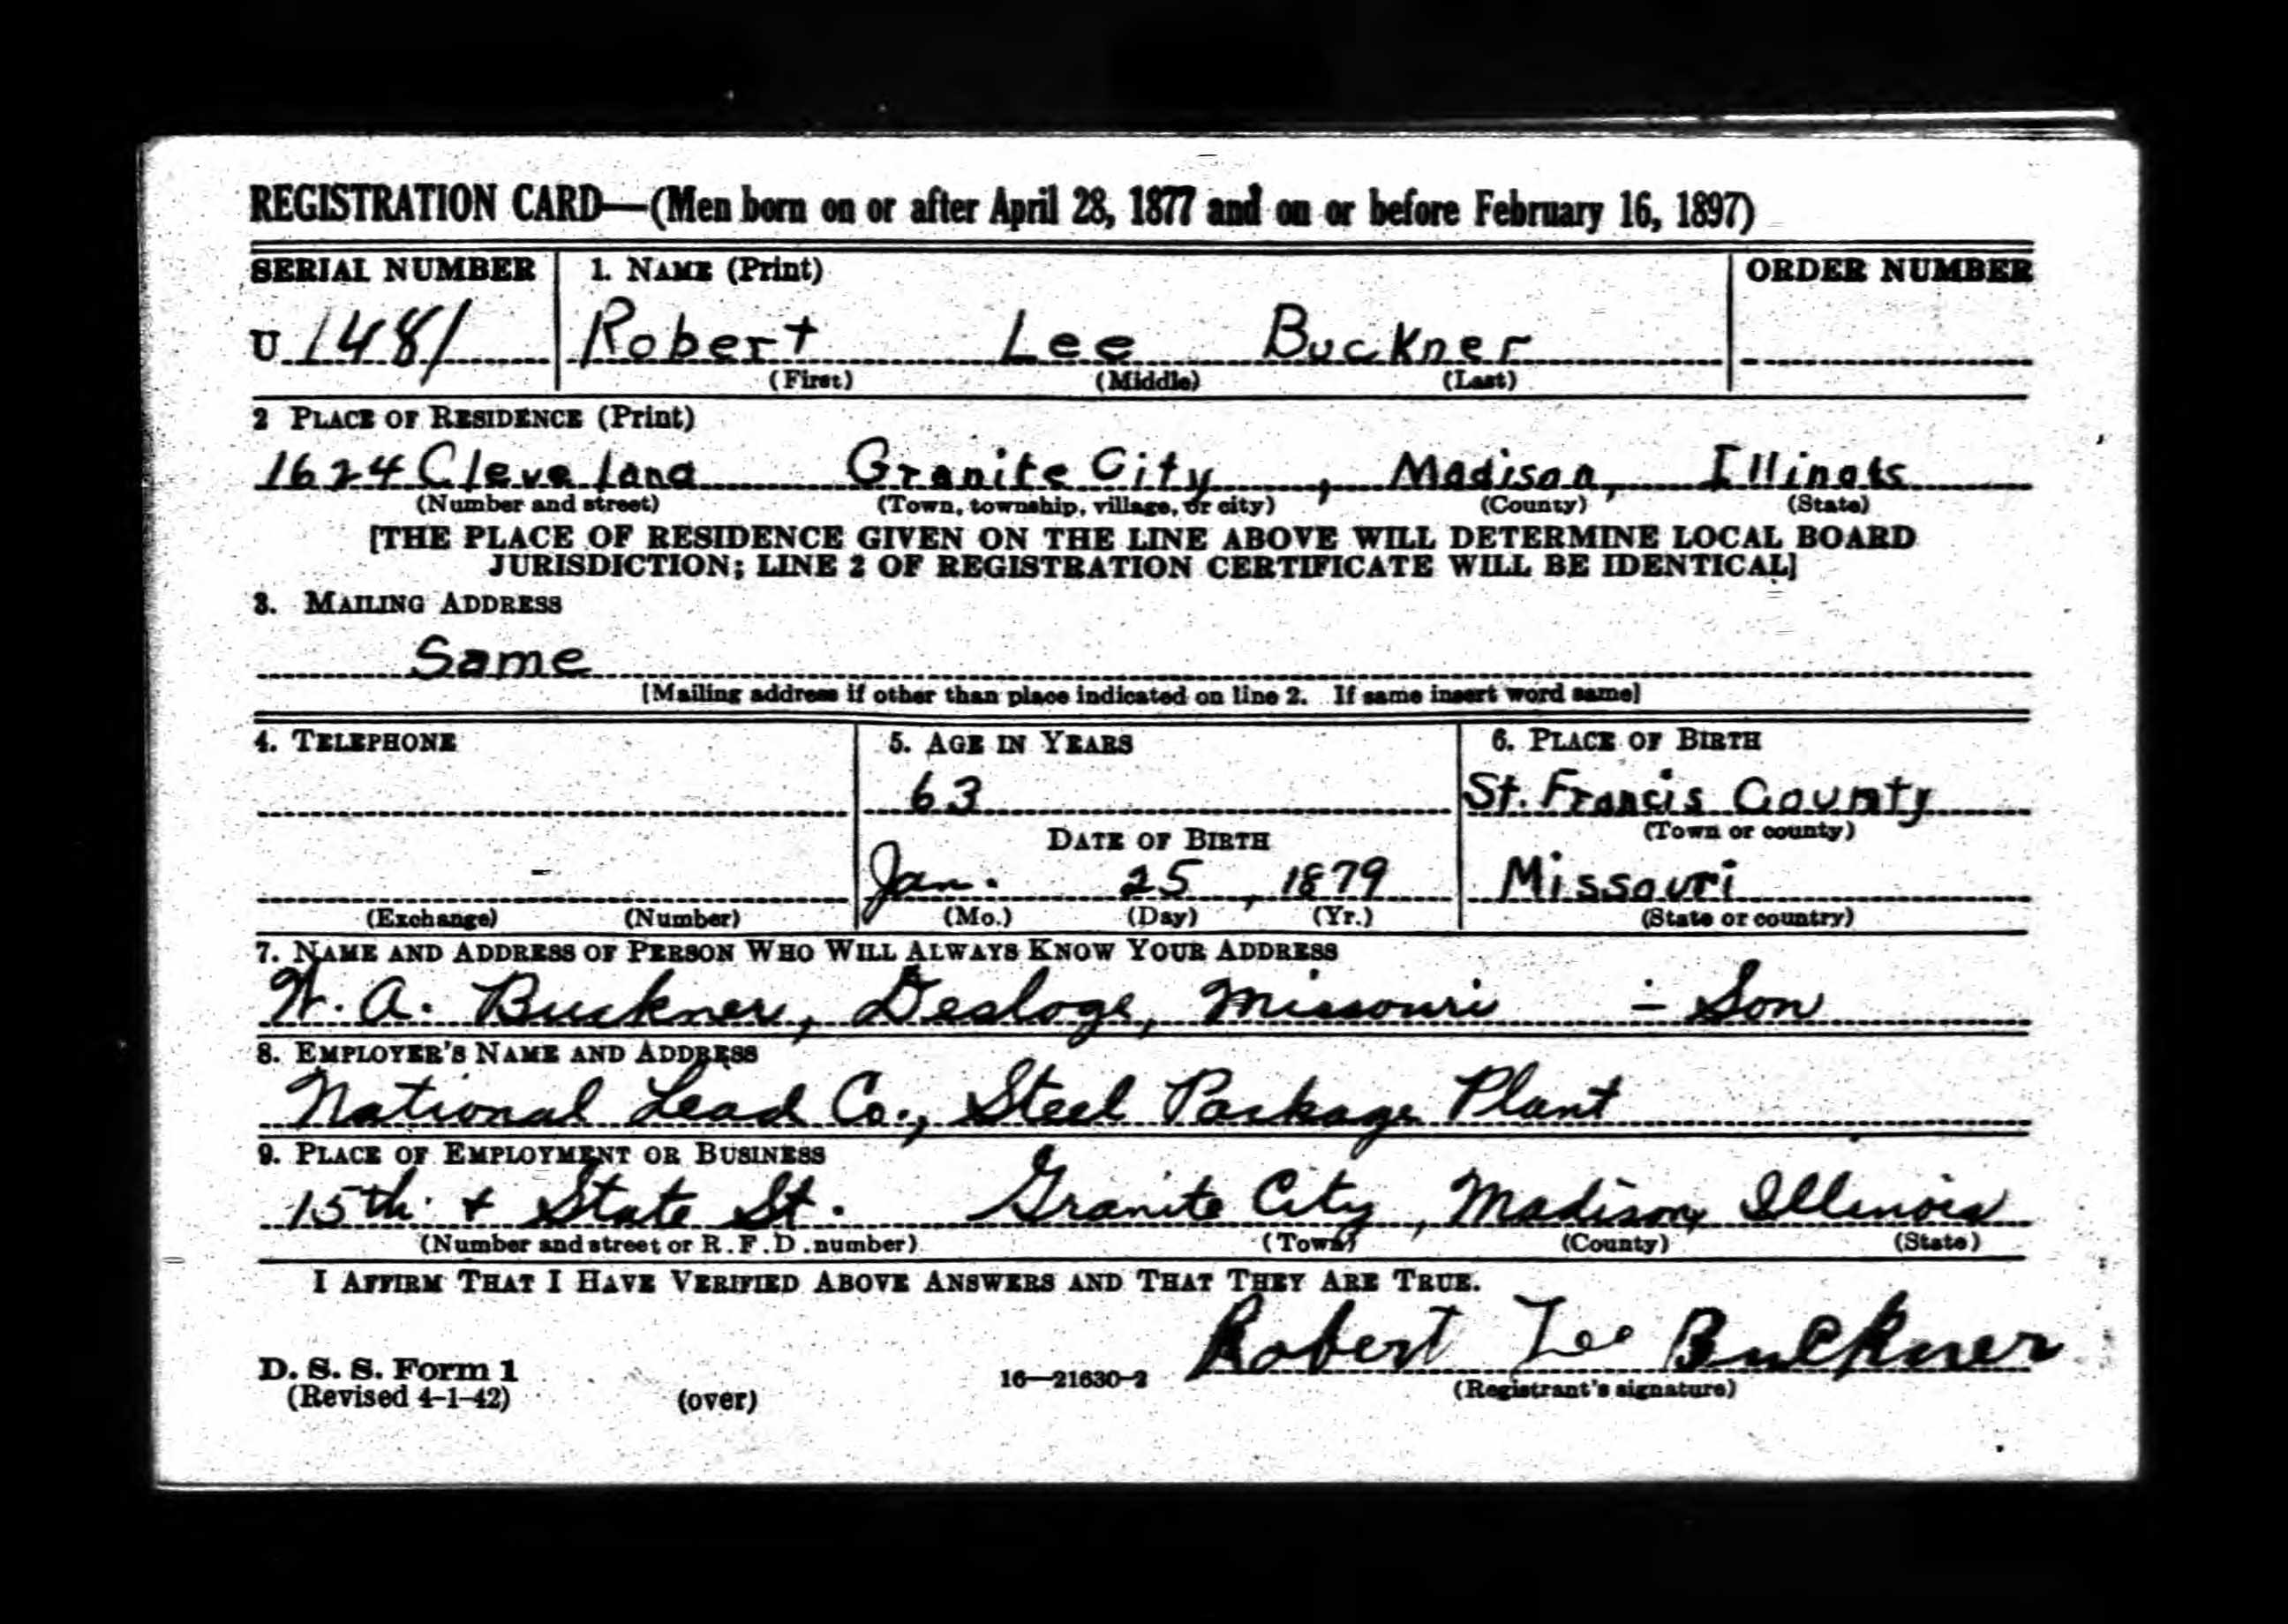 REGISTRATION CARD—(Men born on or after April 28, 1877 and on or before February 16, 1897)
SERIAL NUMBER 1. NAME (Print) ORDER NUMBER
U 1481 Robert Lee Buckner
(First) (Middle) (Last)
2 PLACE OF RESIDENCE (Print)
1624 Cleveland Granite City, Madison, Illinois
(Number and street) (Town, township, village, or city) (County) (State)
[THE PLACE OF RESIDENCE GIVEN ON THE LINE ABOVE WILL DETERMINE LOCAL BOARD
JURISDICTION; LINE 2 OF REGISTRATION CERTIFICATE WILL BE IDENTICAL]
3. MAILING ADDRESS
Same
[Mailing address if other than place indicated on line 2. If same insert word same]
4. TELEPHONE 5. AGE IN YEARS 6. PLACE OF BIRTH
63 St. Francis County
DATE OF BIRTH (Town or county)
Jan. 25, 1879 Missouri
(Exchange) (Number) (Mo.) (Day) (Yr.) (State or country)
7. NAME AND ADDRESS OF PERSON WHO WILL ALWAYS KNOW YOUR ADDRESS
W. A. Buckner, Desloge, Missouri - Son
8. EMPLOYER'S NAME AND ADDRESS
National Lead Co., Steel Package Plant
9. PLACE OF EMPLOYMENT OR BUSINESS
15th + State St. Granite City, Madison, Illinois
(Number and street or R. F. D. number) (Town) (County) (State)
I AFFIRM THAT I HAVE VERIFIED ABOVE ANSWERS AND THAT THEY ARE TRUE.
Robert Lee Buckner
D. S. S. Form 1 16—21630-2 (Registrant's signature)
(Revised 4-1-42) (over)